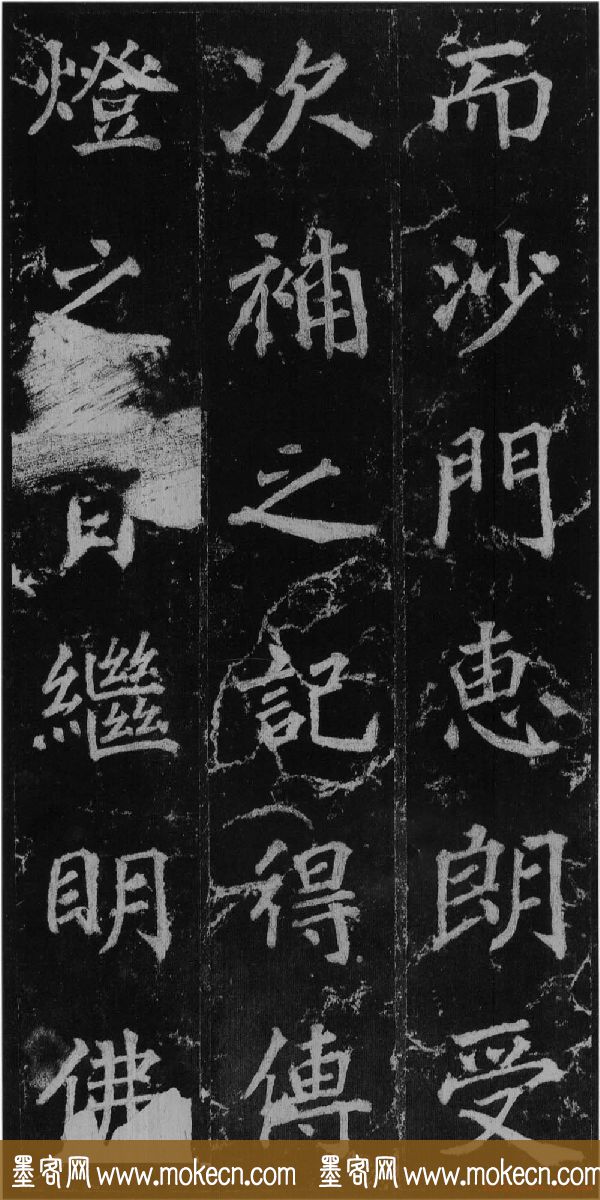 而沙門恵朗受
次補之記得傳
燈之旨繼眀佛
墨客网 www.mokecn.com 墨客网 www.mokecn.com